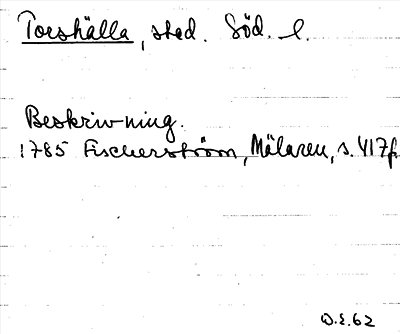 Torshälla, stad. Söd. l.
Beskrivning.
1785 Fischerström, Mälaren, s. 417f.
D.E.62